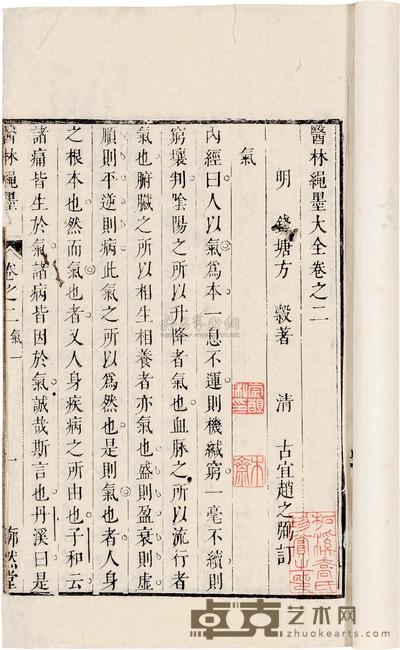 醫林繩墨大全卷之二
明 錢塘方 穀著 清 古宜趙之弼訂
氣
內經曰人以氣為本一息不運則機緘窮一毫不續則
窮壤判陰陽之所以升降者氣也血脉之所以流行者
氣也腑臟之所以相生相養者亦氣也盛則盈衰則虛
順則平逆則病此氣之所以為然也是則氣也者人身
之根本也然而氣也者又人身疾病之所由也子和云
諸痛皆生於氣諸病皆因於氣誠哉斯言也丹溪曰是
醫林繩墨 卷之二 氣 一
卓克艺术网
www.zhuokearts.com